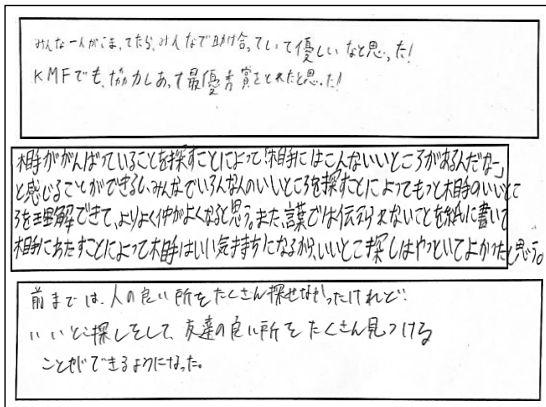 みんな一人がこまってたら、みんなで助け合っていて優しいなと思った!
KMFでも、協力しあって最優秀賞をとれたと思った!
相手ががんばっていることを探すことによって「相手にはこんないいところがあるんだなー」
と感じることができるし、みんなでいろんな人のいいところを探すことによってもっと相手のいいとこ
ろを理解できて、よりよく仲がよくなると思う。また、言葉では伝えられないことを紙に書いて
相手にわたすことによって相手はいい気持ちになるから、いいとこ探しはやっといてよかったと思う。
前までは、人の良い所をたくさん探せなかったけれど、
いいとこ探しをして、友達の良い所をたくさん見つける
ことができるようになった。